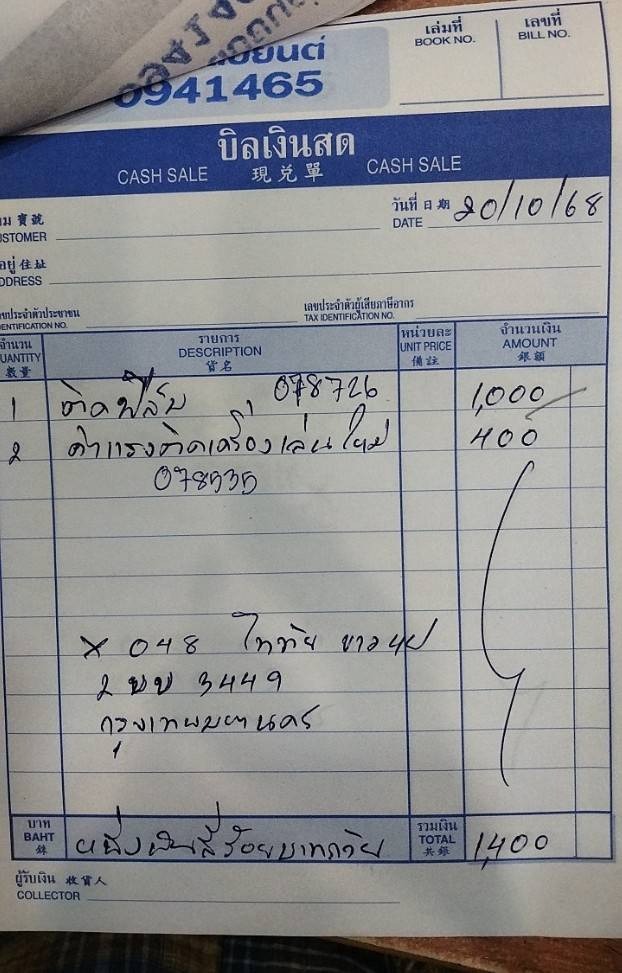 0941465
เล่มที่ เลขที่
BOOK NO. BILL NO.
บิลเงินสด
CASH SALE 現兌單 CASH SALE
寶號 วันที่ 日期 20/10/68
CUSTOMER DATE
อยู่ 住址
ADDRESS
เลขประจำตัวประชาชน เลขประจำตัวผู้เสียภาษีอากร
IDENTIFICATION NO. TAX IDENTIFICATION NO.
จำนวน รายการ หน่วยละ จำนวนเงิน
QUANTITY DESCRIPTION UNIT PRICE AMOUNT
數量 貨名 備註 銀額
1 ติดฟิล์ม 078726 1,000
2 ค่าแรงติดเครื่องเล่นใหม่ 400
078535
X 048
2 ขบ 3449
กรุงเทพมหานคร
บาท รวมเงิน
BAHT หนึ่งพันสี่ร้อยบาทถ้วน TOTAL 1,400
銖 共銀
ผู้รับเงิน 收貨人
COLLECTOR